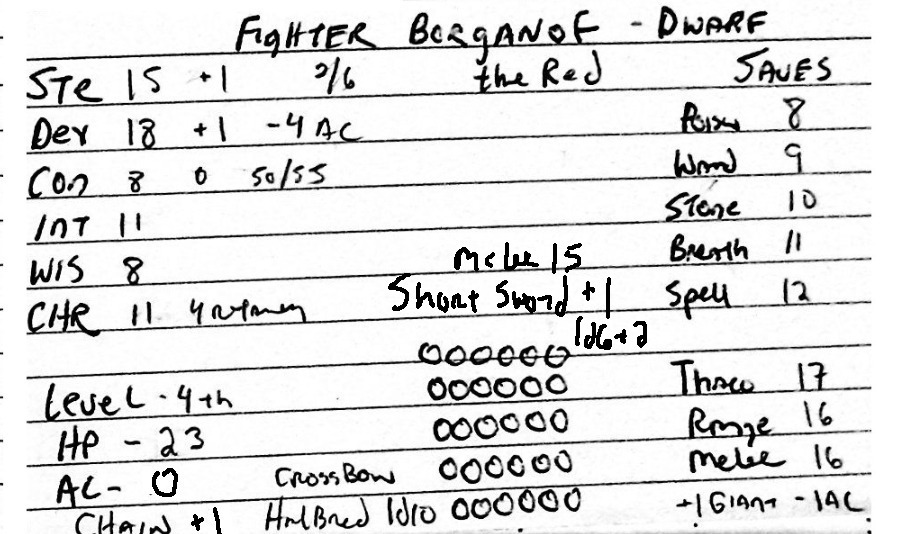 FIGHTER BORGANOF - DWARF
STR 15 +1 2/6 the Red SAVES
Dex 18 +1 -4 AC Poison 8
Con 8 0 50/55 Wand 9
INT 11 Stone 10
WIS 8 Melee 15 Breath 11
CHR 11 4 Short Sword +1 Spell 12
1d6+2
OOOOOO
Level - 4th OOOOOO Thaco 17
HP - 23 OOOOOO Range 16
AC - 0 CROSSBOW OOOOOO Melee 16
CHAIN +1 1d10 OOOOOO +1 GIANT -1AC